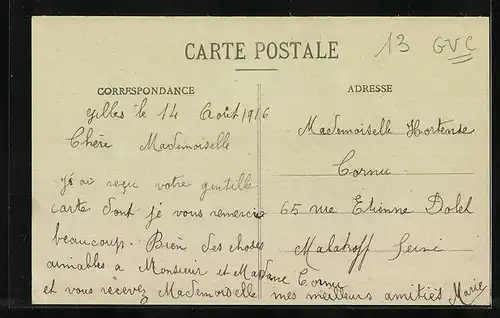 CARTE POSTALE
13 GVC
CORRESPONDANCE
Gilles le 14 Août 1916
Chère Mademoiselle
J'ai reçu votre gentille
carte dont je vous remercie
beaucoup. Bien des choses
aimables a Monsieur et Madame Cornu
et vous recevez Mademoiselle mes meilleurs amitiés Marie
ADRESSE
Mademoiselle Hortense
Cornu
65 rue Etienne Dolet
Malakoff Seine